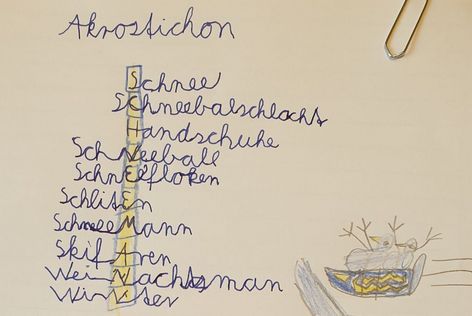 Akrostichon
Schnee
SChneebalschlacht
Handschuhe
SchNeeball
SchnEefloken
SchlitEn
SchneeMann
SkifAren
WeiNachtsman
WiNter